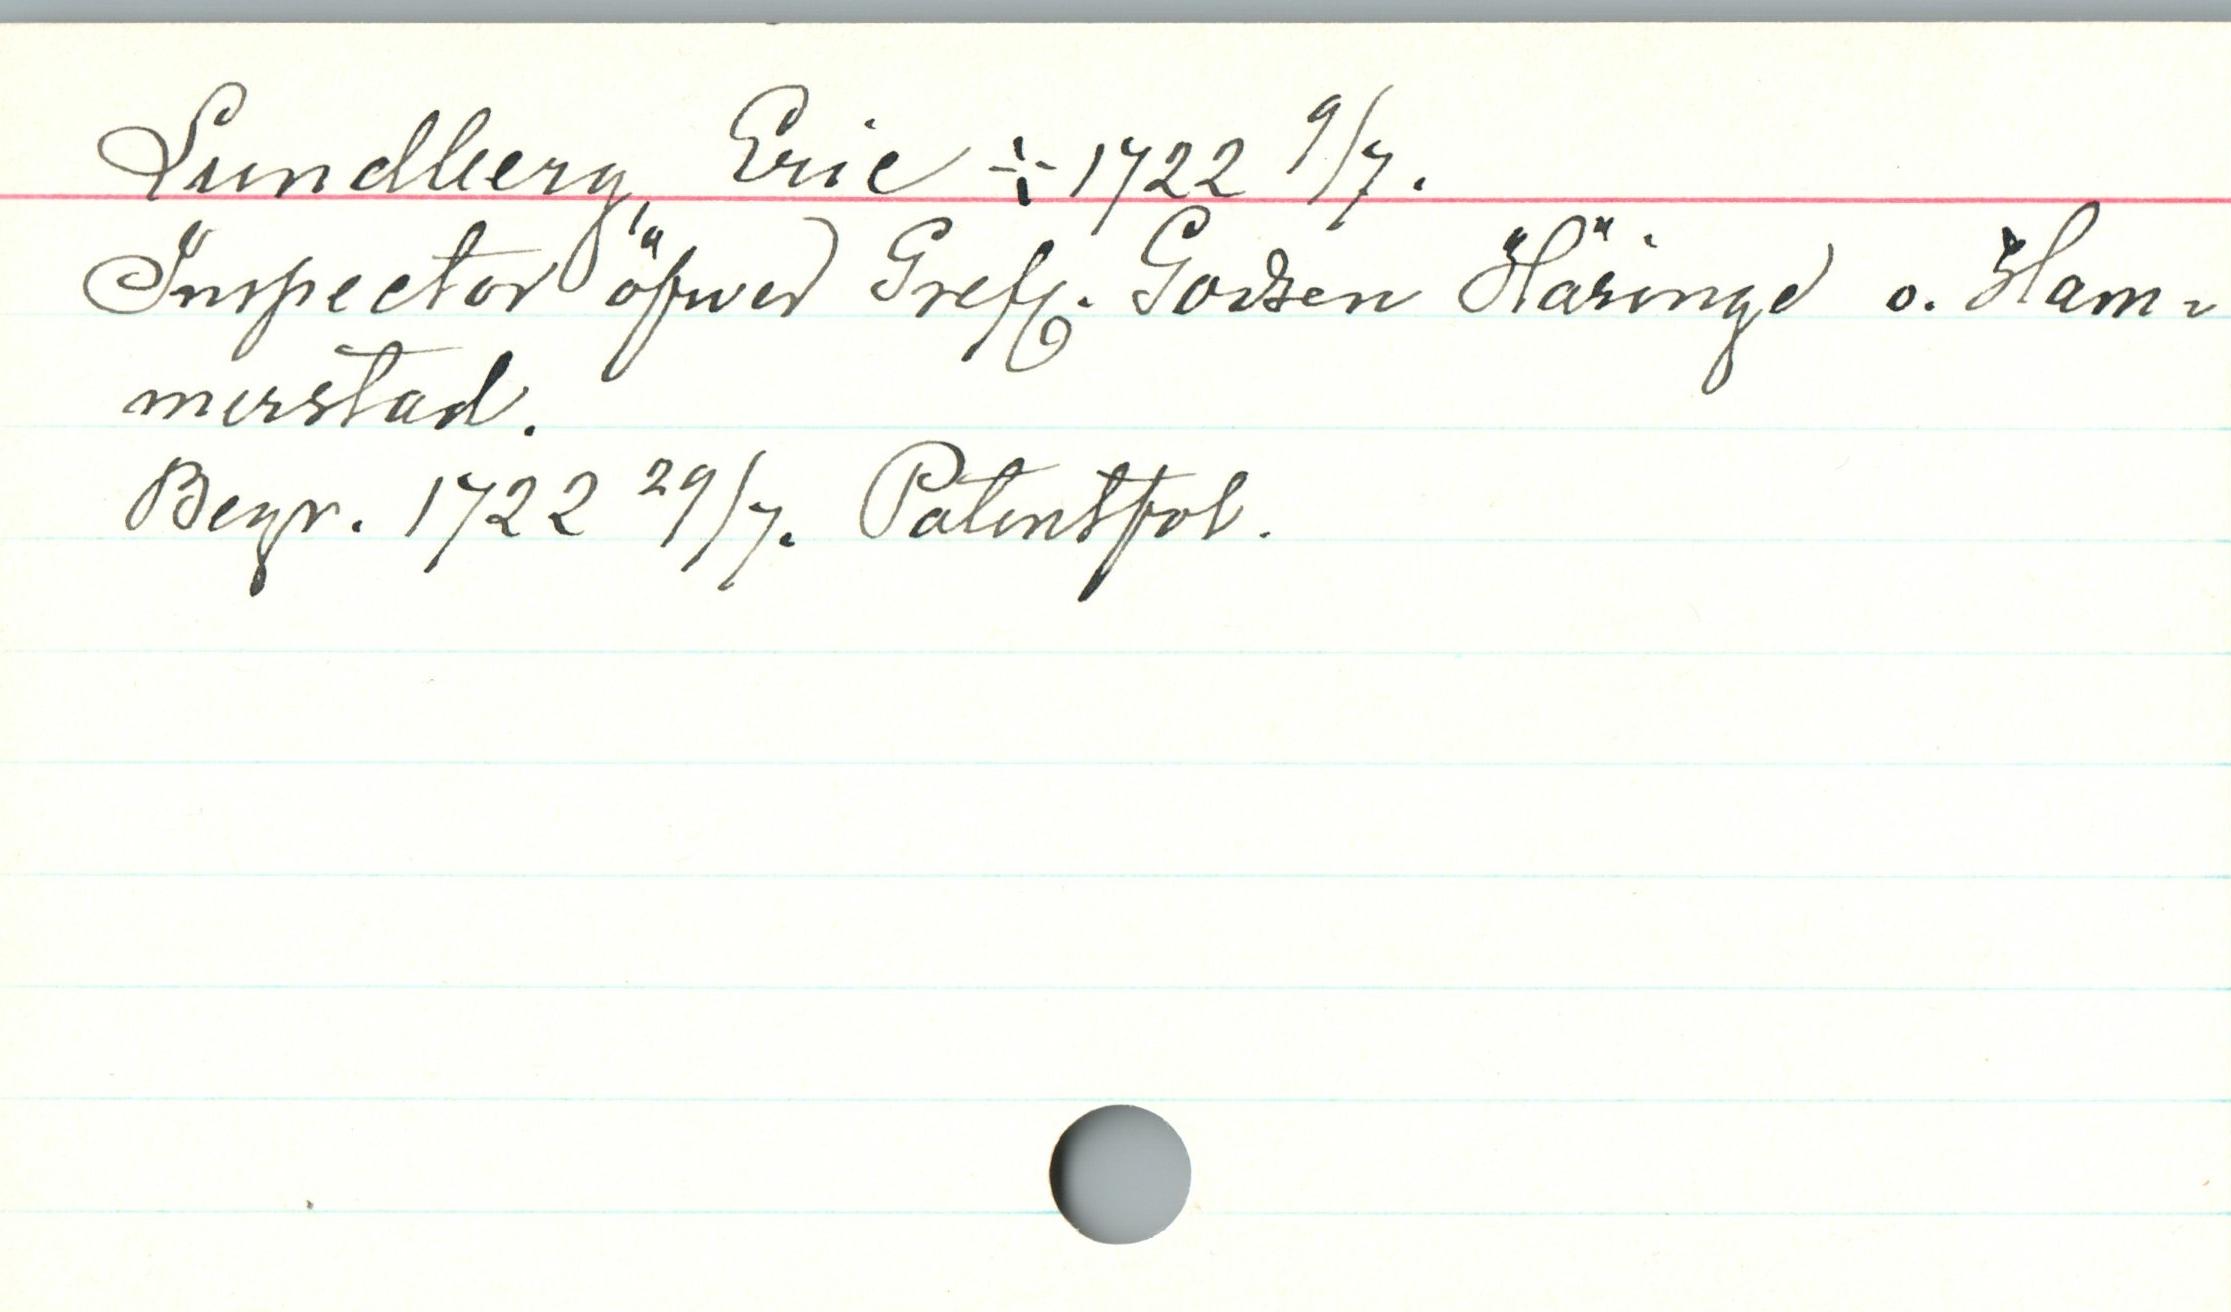 Lundberg, Eric ÷ 1722 9/7.
Inspector öfwer Grefl. Godsen Häringe o. Ham-
merstad.
Begr. 1722 29/7. Patentfol.